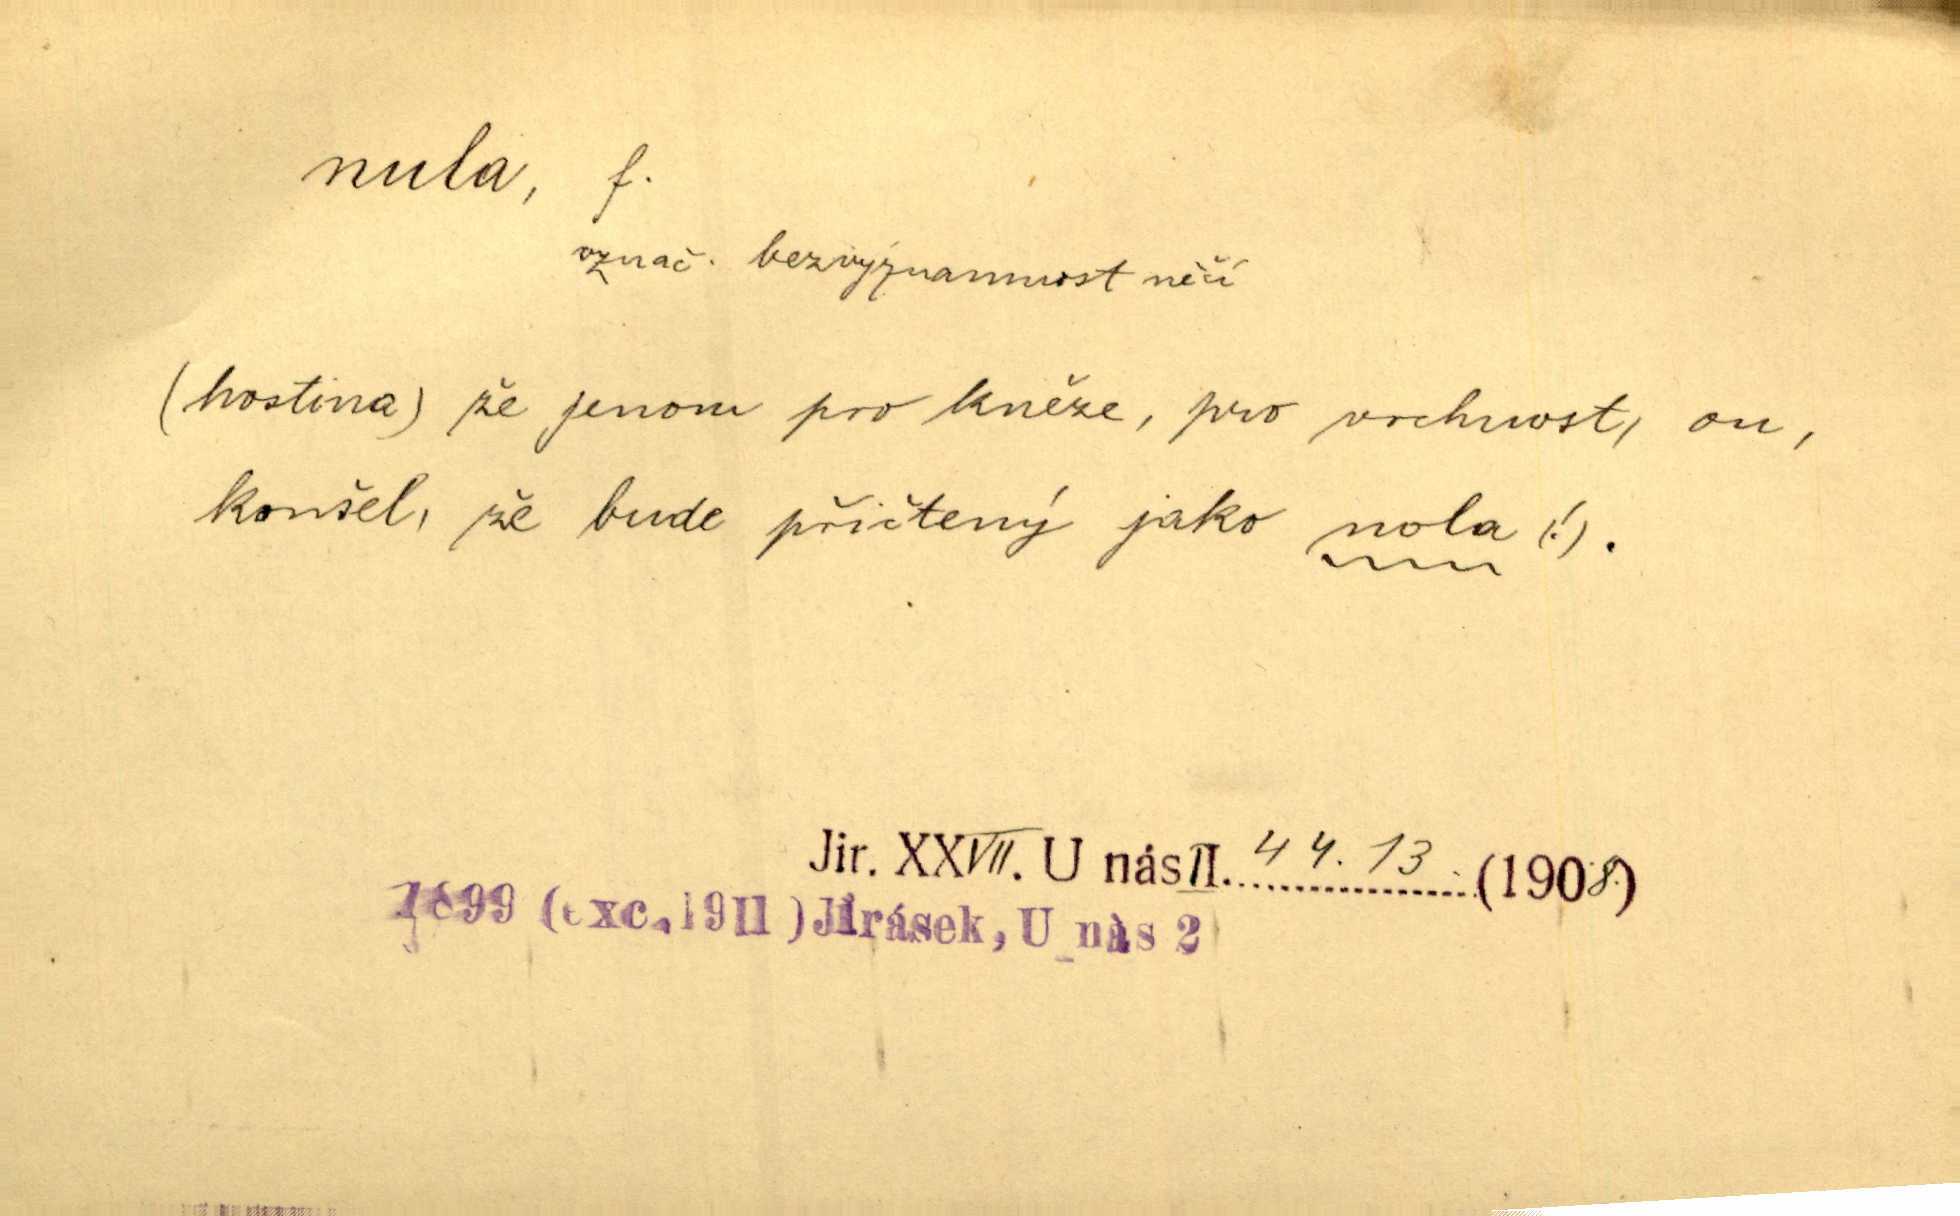 nula, f.
význač. bezvýznamnost něčí
(hostina) že jenom pro kněze, pro vrchnost, on,
konšel, že bude přičtený jako nola (!).
Jir. XXVII. U nás II. 44. 13 (1908)
1899 (exc. 1911) Jirásek, U nás 2